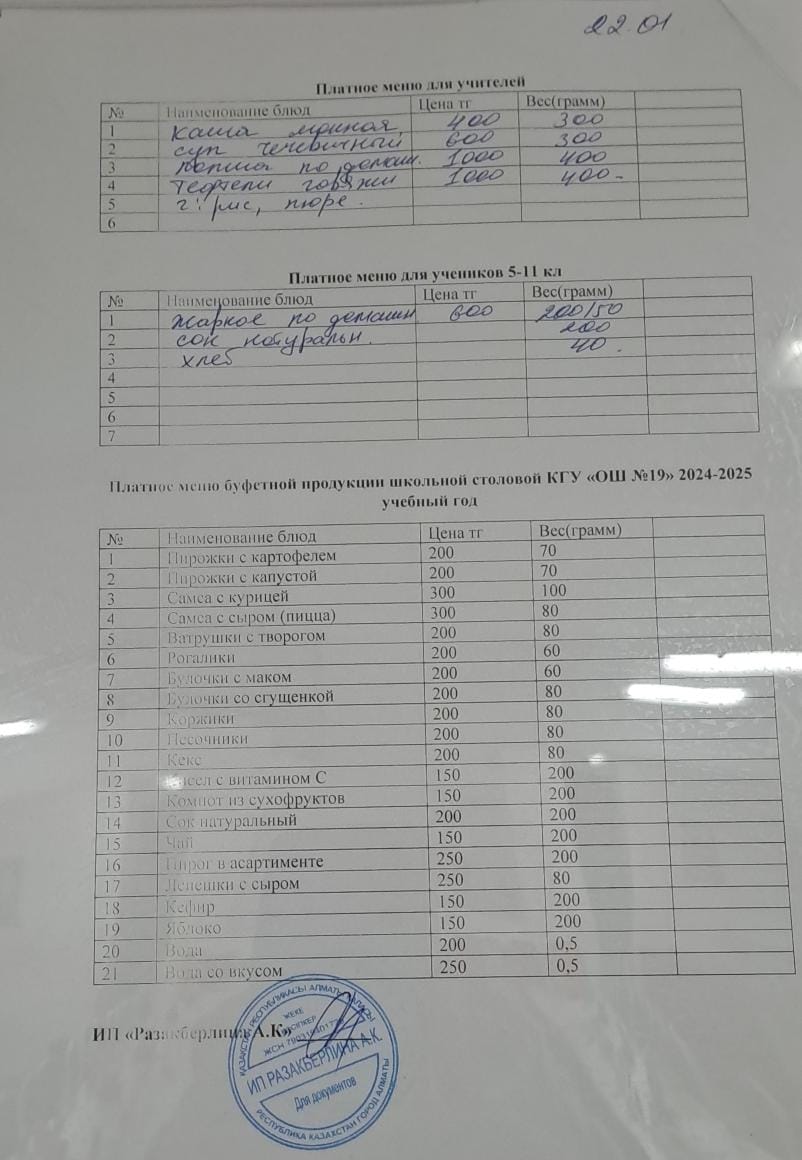 22.01
Платное меню для учителей
№ Наименование блюд Цена тг Вес(грамм)
1 Каша манная 400 300
2 суп чечевичный 600 300
3 лапша по домаш. 1000 400
4 тефтели говяжи 1000 400
5 г: рис, пюре.
6
Платное меню для учеников 5-11 кл
№ Наименование блюд Цена тг Вес(грамм)
1 жаркое по домашн 600 200/50
2 сок натуральн. 200
3 хлеб 40
4
5
6
7
Платное меню буфетной продукции школьной столовой КГУ «ОШ №19» 2024-2025
учебный год
№ Наименование блюд Цена тг Вес(грамм)
1 Пирожки с картофелем 200 70
2 Пирожки с капустой 200 70
3 Самса с курицей 300 100
4 Самса с сыром (пицца) 300 80
5 Ватрушки с творогом 200 80
6 Рогалики 200 60
7 Булочки с маком 200 60
8 Булочки со сгущенкой 200 80
9 Коржики 200 80
10 Песочники 200 80
11 Кекс 200 80
12 Кисел с витамином С 150 200
13 Компот из сухофруктов 150 200
14 Сок натуральный 200 200
15 Чай 150 200
16 Пирог в асартименте 250 200
17 Лепешки с сыром 250 80
18 Кефир 150 200
19 Яблоко 150 200
20 Вода 200 0,5
21 Вода со вкусом 250 0,5
ИП «Разакберлина А.К»
ҚАЗАҚСТАН РЕСПУБЛИКАСЫ АЛМАТЫ ҚАЛАСЫ
ЖЕКЕ
КӘСІПКЕР
ЖСН
ИП РАЗАКБЕРЛИНА А.К.
Для документов
РЕСПУБЛИКА КАЗАХСТАН ГОРОД АЛМАТЫ